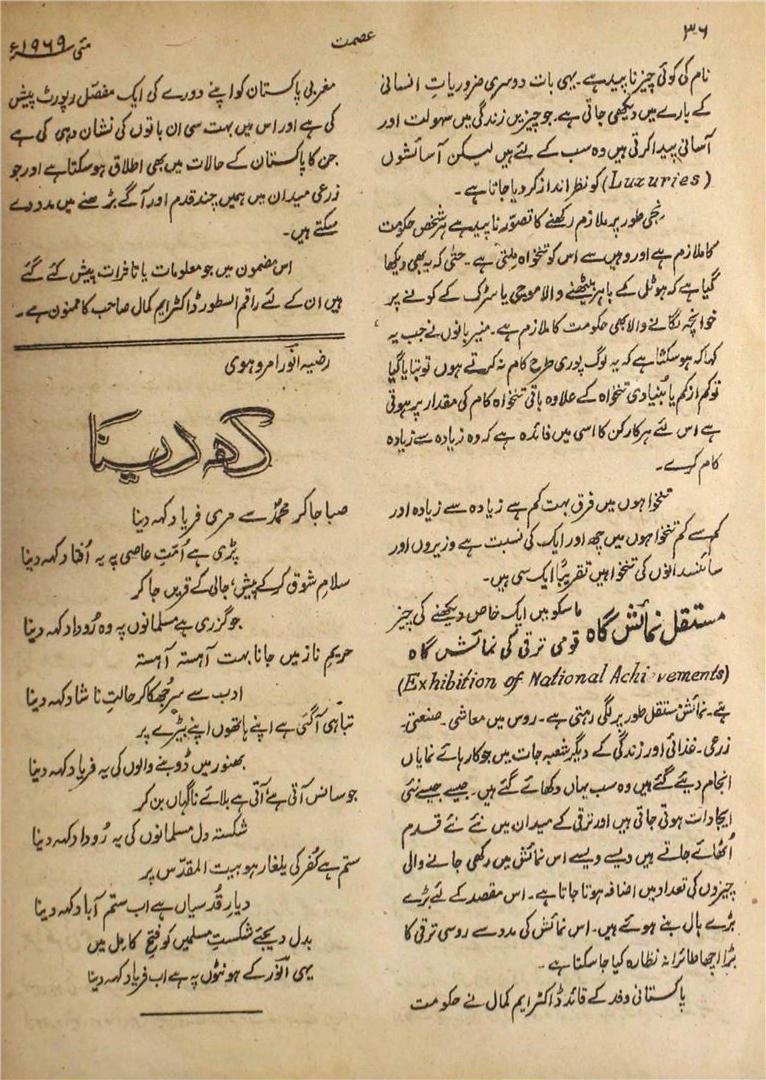 ۳۶
عصمت
مئی ۱۹۶۹ء
نام کی کوئی چیز ناپید ہے۔ یہی بات دوسری ضروریاتِ انسانی
کے بارے میں دیکھی جاتی ہے۔ جو چیزیں زندگی میں سہولت اور
آسانی پیدا کرتی ہیں وہ سب کے لئے ہیں لیکن آسائشوں
(Luxuries) کو نظر انداز کر دیا جاتا ہے۔
نجی طور پر ملازم رکھنے کا تصوّر ناپید ہے ہر شخص حکومت
کا ملازم ہے اور وہیں سے اس کو تنخواہ ملتی ہے۔ حتٰی کہ یہ بھی دیکھا
گیا ہے کہ ہوٹل کے باہر بیٹھنے والا موچی یا سڑک کے کونے پر
خوانچہ لگانے والا بھی حکومت کا ملازم ہے۔ میزبانوں نے جب یہ
کہا کہ ہو سکتا ہے کہ یہ لوگ پوری طرح کام نہ کرتے ہوں تو بتایا گیا
تو کم از کم یا بنیادی تنخواہ کے علاوہ باقی تنخواہ کام کی مقدار پر ہوتی
ہے اس لئے ہر کارکن کا اسی میں فائدہ ہے کہ وہ زیادہ سے زیادہ
کام کرے۔
تنخواہوں میں فرق بہت کم ہے زیادہ سے زیادہ اور
کم سے کم تنخواہوں میں چھ اور ایک کی نسبت ہے وزیروں اور
سائنسدانوں کی تنخواہیں تقریباً ایک سی ہیں۔
مستقل نمائش گاہ
ماسکو میں ایک خاص دیکھنے کی چیز
قومی ترقی کی نمائش گاہ
(Exhibition of National Achievements)
ہے۔ نمائش مستقل طور پر لگی رہتی ہے۔ روس میں معاشی۔ صنعتی۔
زرعی۔ غذائی اور زندگی کے دیگر شعبہ جات میں جو کارہائے نمایاں
انجام دیئے گئے ہیں وہ سب یہاں دکھائے گئے ہیں۔ جیسے جیسے نئی
ایجادات ہوتی جاتی ہیں اور ترقی کے میدان میں نئے نئے قدم
اُٹھائے جاتے ہیں ویسے ویسے اس نمائش میں رکھی جانے والی
چیزوں کی تعداد میں اضافہ ہوتا جاتا ہے۔ اس مقصد کے لئے بڑے
بڑے ہال بنے ہوئے ہیں۔ اس نمائش کی مدد سے روسی ترقی کا
بڑا اچھا طائرانہ نظارہ کیا جا سکتا ہے۔
پاکستانی وفد کے قائد ڈاکٹر ایم کمال نے حکومت
مغربی پاکستان کو اپنے دورے کی ایک مفصّل رپورٹ پیش
کی ہے اور اس میں بہت سی ان باتوں کی نشان دہی کی ہے
جن کا پاکستان کے حالات میں بھی اطلاق ہو سکتا ہے اور جو
زرعی میدان میں ہمیں چند قدم اور آگے بڑھنے میں مدد دے
سکتے ہیں۔
اس مضمون میں جو معلومات یا تاثرات پیش کئے گئے
ہیں ان کے لئے راقم السطور ڈاکٹر ایم کمال صاحب کا ممنون ہے۔
رضیہ انور امروہوی
کہہ دینا
صبا جا کر محمدؐ سے مری فریاد کہہ دینا
پڑی ہے اُمتِ عاصی پہ یہ اُفتاد کہہ دینا
سلامِ شوق کر کے پیش، جالی کے قریں جا کر
جو گزری ہے مسلمانوں پہ وہ رُوداد کہہ دینا
حریمِ ناز میں جانا بہت آہستہ آہستہ
ادب سے سر جُھکا کر حالتِ ناشاد کہہ دینا
تباہی آ گئی ہے اپنے ہاتھوں اپنے بیڑے پر
بھنور میں ڈوبنے والوں کی یہ فریاد کہہ دینا
جو سانس آتی ہے آتی ہے بلائے ناگہاں بن کر
شکستہ دل مسلمانوں کی یہ رُوداد کہہ دینا
ستم ہے کُفر کی یلغار ہو بیت المقدّس پر
دیارِ قُدسیاں ہے اب ستم آباد کہہ دینا
بدل دیجئے شکستِ مسلمیں کو فتحِ کامل میں
یہی انور کے ہونٹوں پہ ہے اب فریاد کہہ دینا